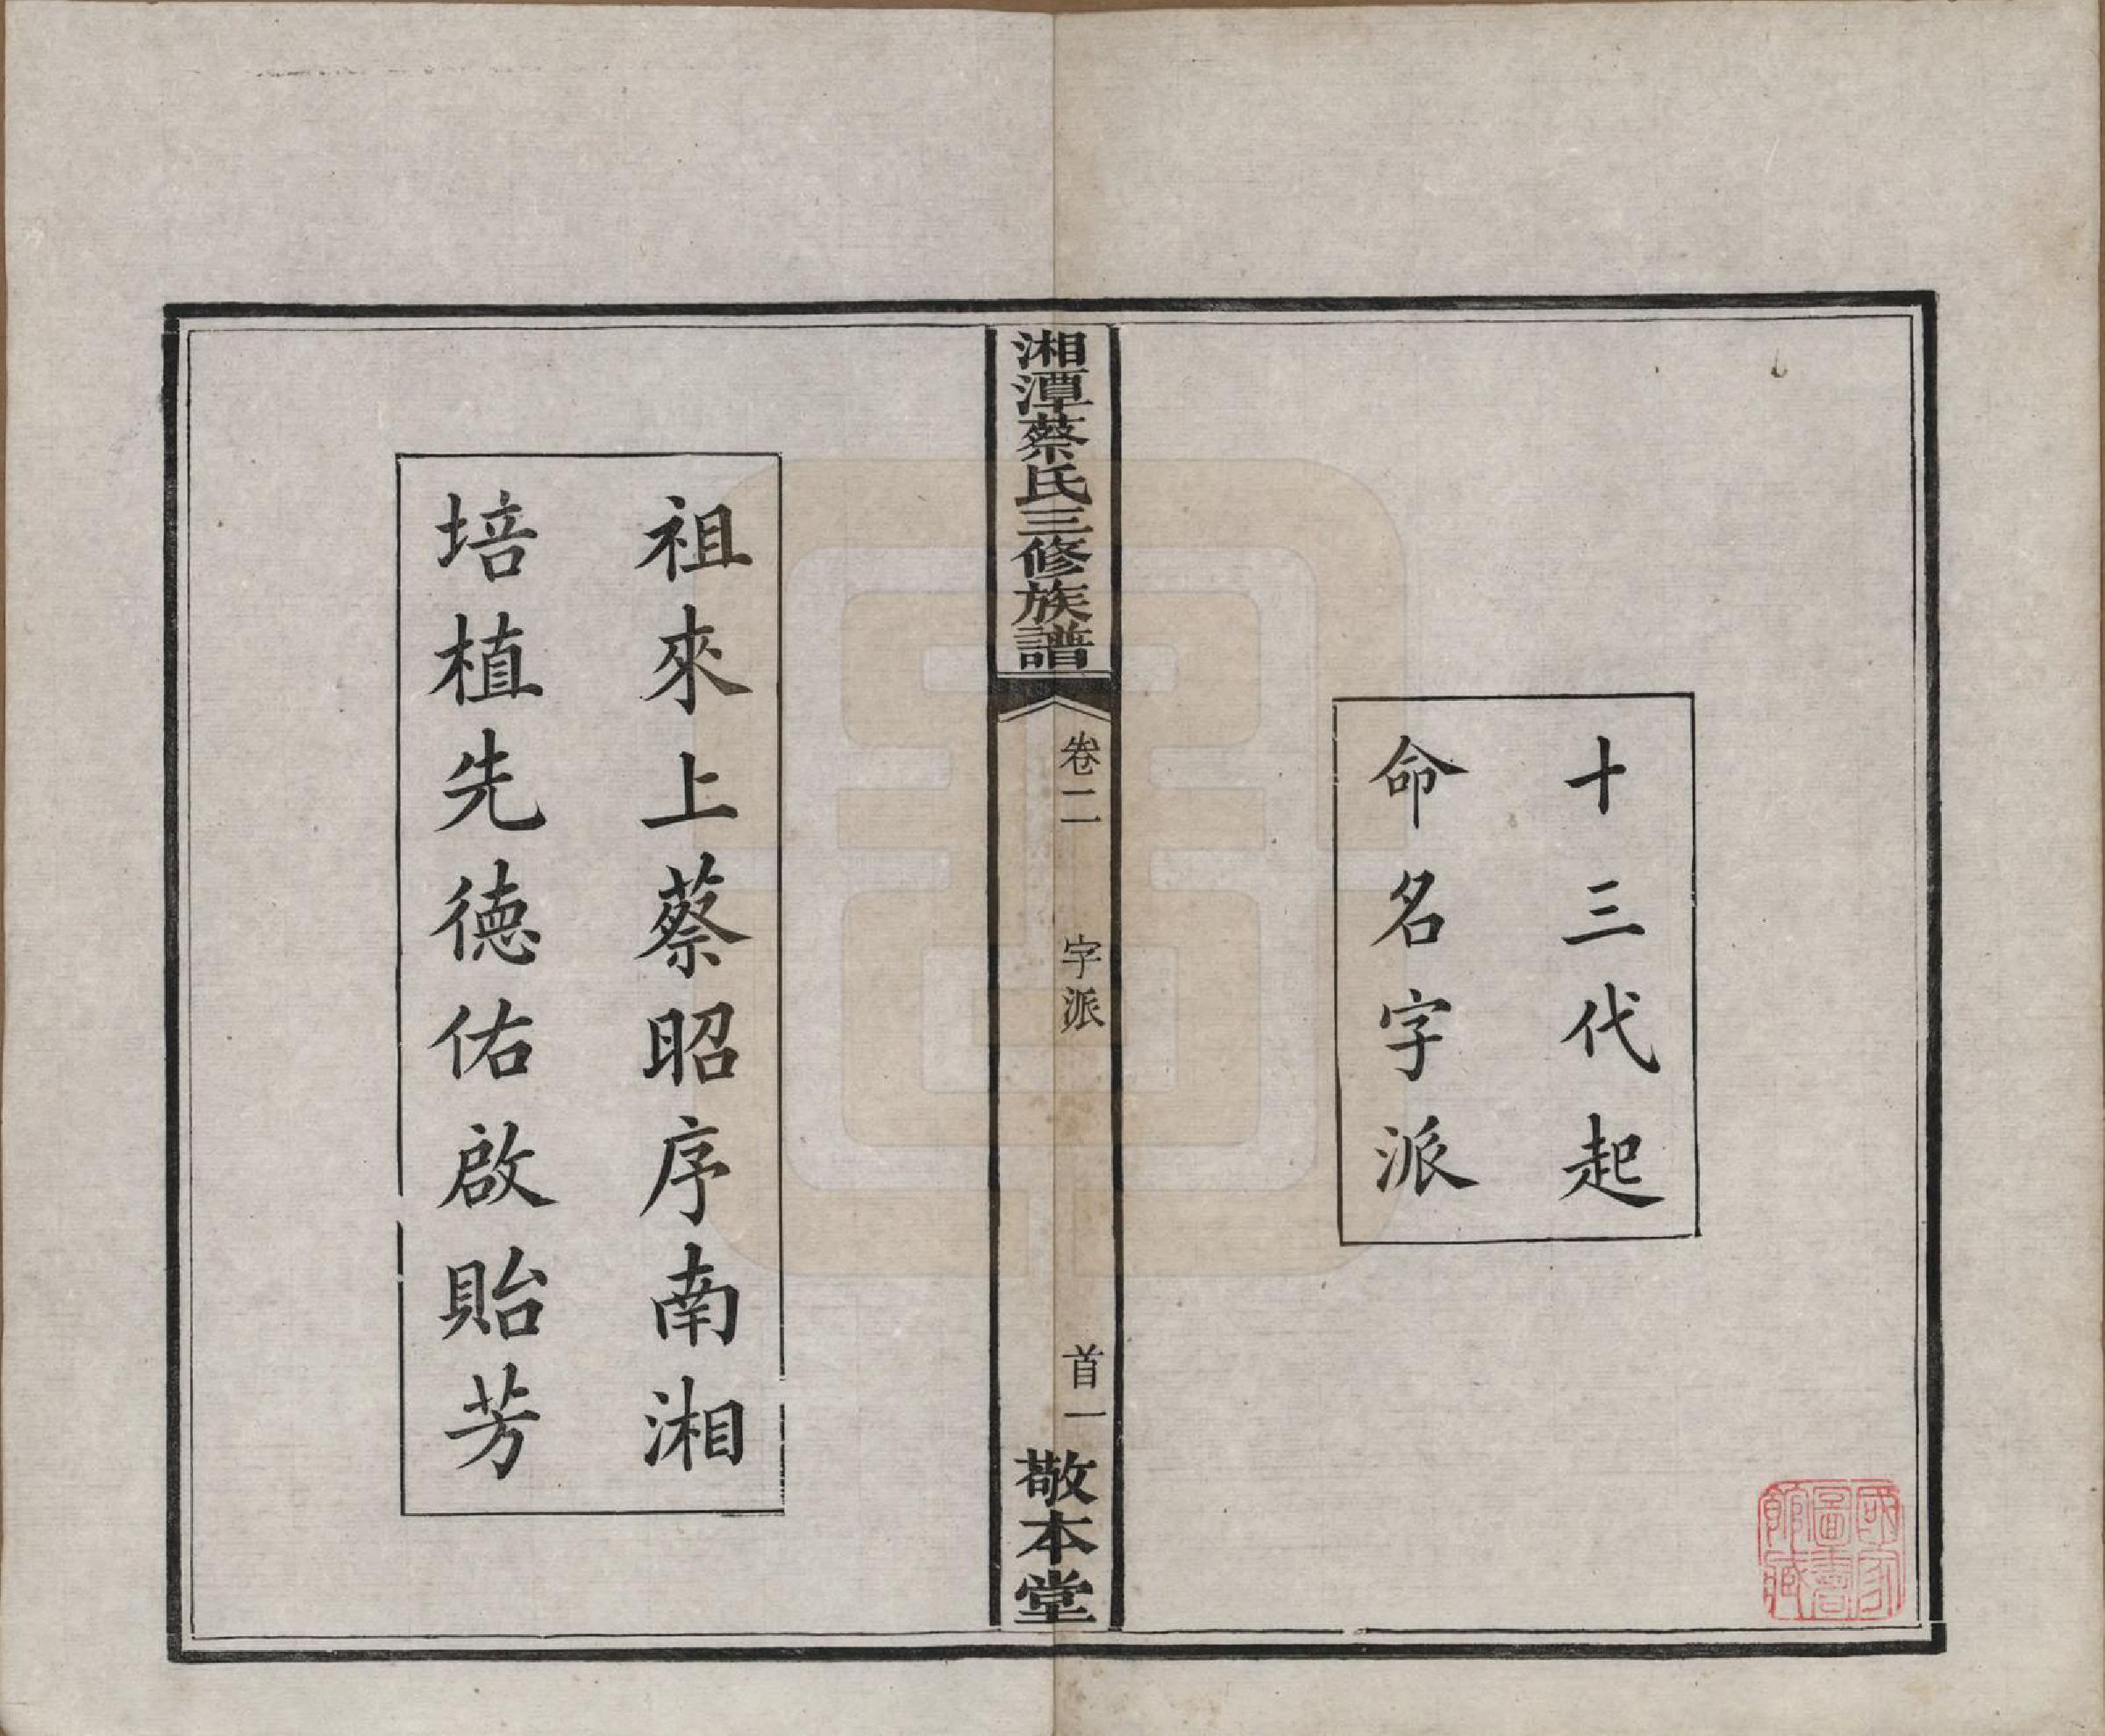 十三代起
命名字派
國家
圖書
館藏
湘潭蔡氏三修族譜
卷二
字派
首一
敬本堂
祖來上蔡昭序南湘
培植先德佑啟貽芳